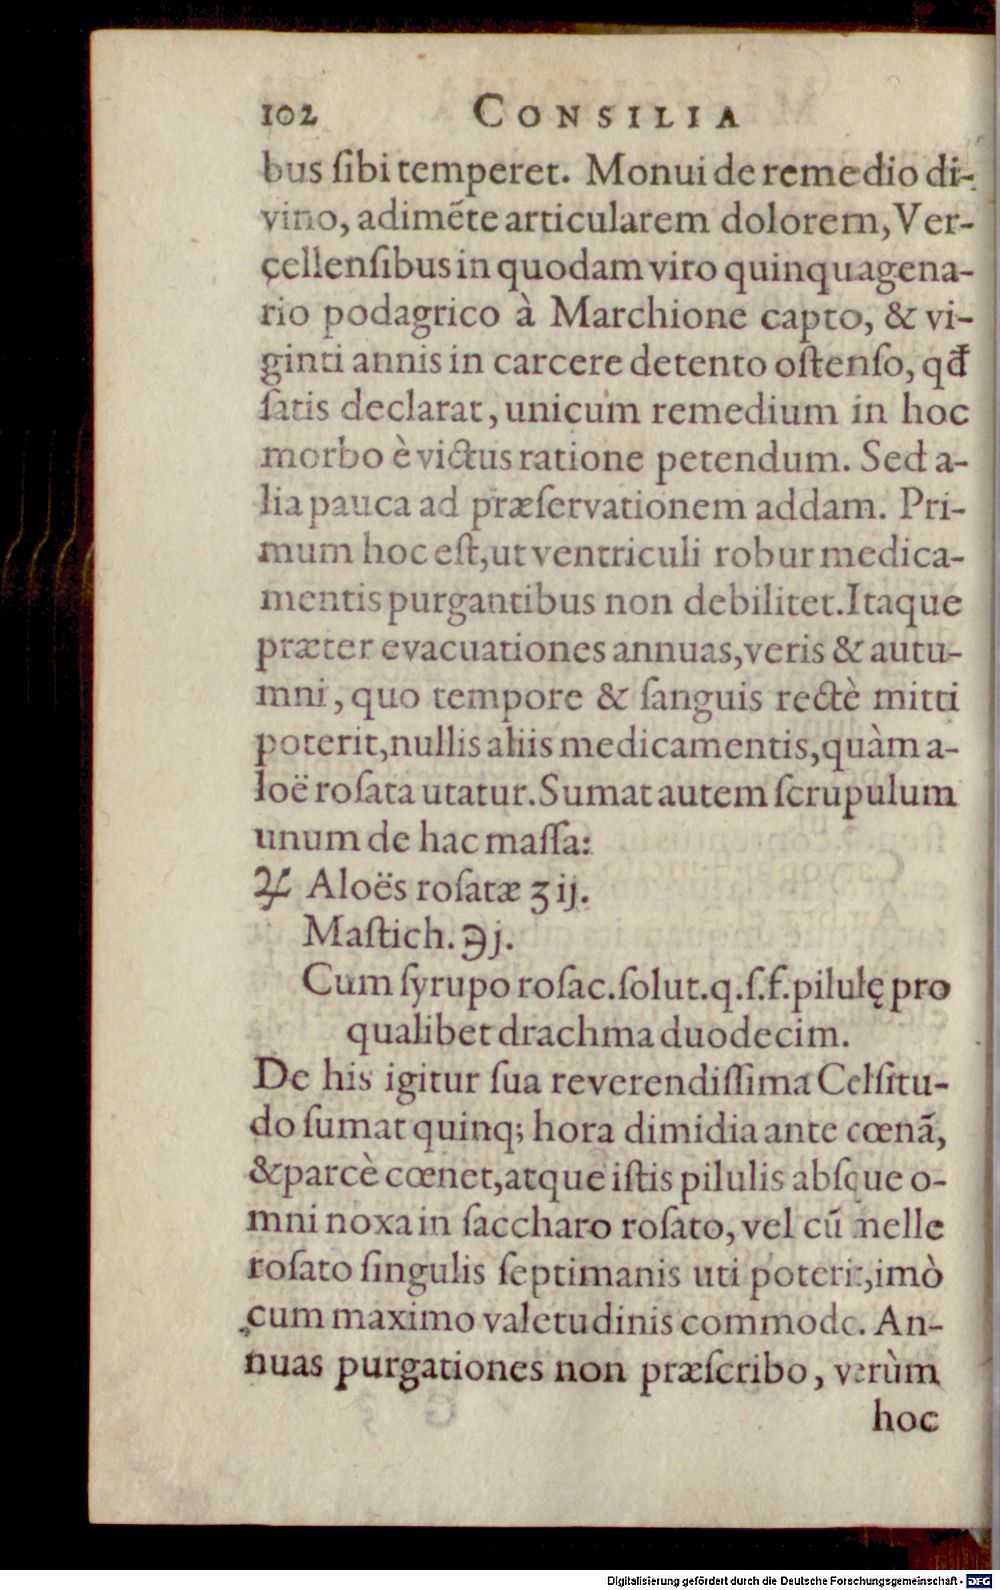 102 CONSILIA
bus ſibi temperet. Monui de remedio di-
vino, adimẽte articularem dolorem, Ver-
çellenſibus in quodam viro quinquagena-
rio podagrico à Marchione capto, & vi-
ginti annis in carcere detento oſtenſo, qđ
ſatis declarat, unicum remedium in hoc
morbo è victus ratione petendum. Sed a-
lia pauca ad præſervationem addam. Pri-
mum hoc eſt, ut ventriculi robur medica-
mentis purgantibus non debilitet. Itaque
præter evacuationes annuas, veris & autu-
mni, quo tempore & ſanguis rectè mitti
poterit, nullis aliis medicamentis, quàm a-
loë roſata utatur. Sumat autem ſcrupulum
unum de hac maſſa:
♃ Aloës roſatæ ʒ ij.
Maſtich. ℈ j.
Cum ſyrupo roſac. ſolut. q. ſ. f. pilulę pro
qualibet drachma duodecim.
De his igitur ſua reverendiſſima Celſitu-
do ſumat quinq; hora dimidia ante cœnã,
& parcè cœnet, atque iſtis pilulis abſque o-
mni noxa in ſaccharo roſato, vel cũ melle
roſato ſingulis ſeptimanis uti poterit, imò
cum maximo valetudinis commodo. An-
nuas purgationes non præſcribo, verùm
hoc
Digitalisierung gefördert durch die Deutsche Forschungsgemeinschaft - DFG